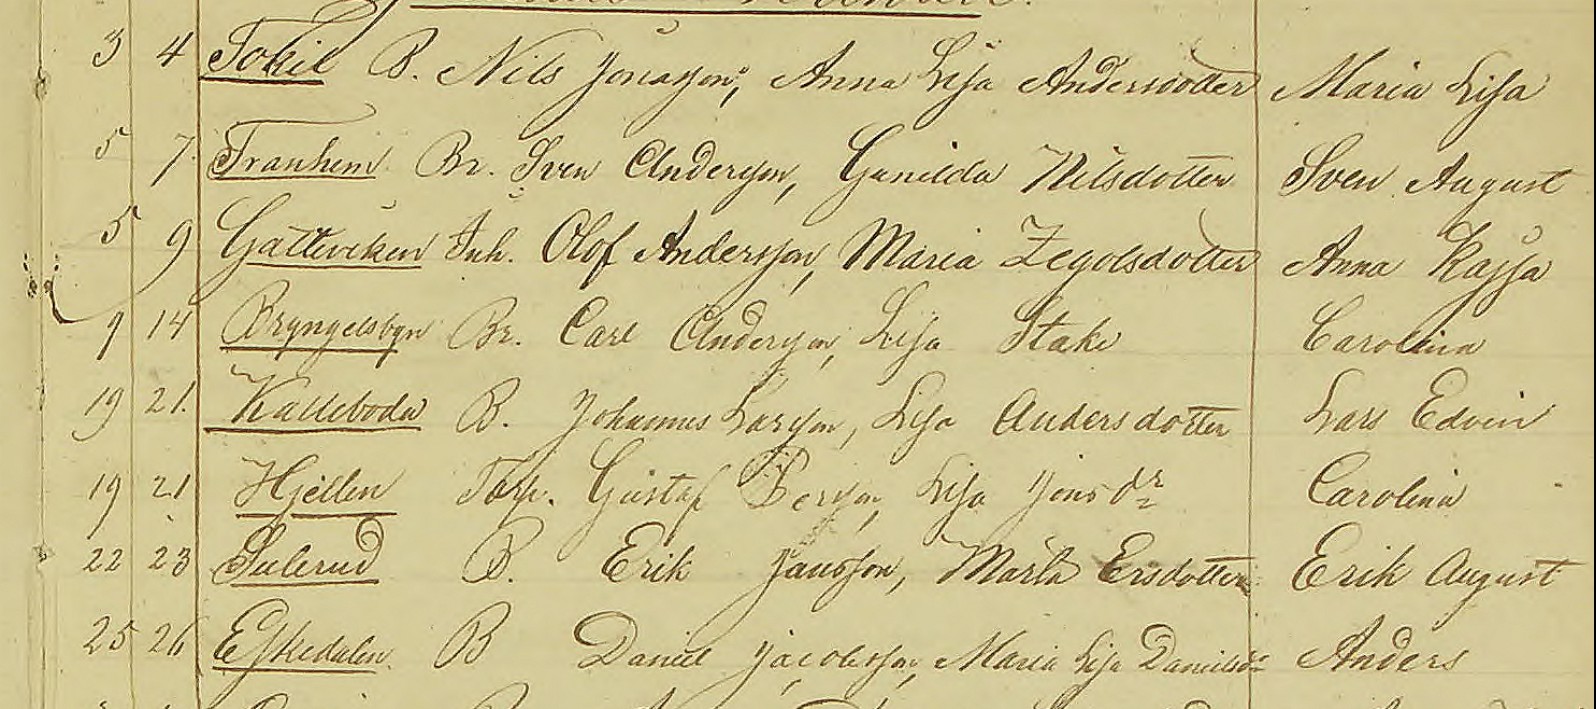 3 4 Tokil B. Nils Jonasson, Anna Lisa Andersdotter Maria Lisa
5 7. Tranhem. Br. Sven Andersson, Gunilda Nilsdotter Sven August
5 9 Gätteviken Inh. Olof Andersson, Maria Zegolsdotter Anna Kajsa
9 14 Bryngelsbyn Br. Carl Andersson, Lisa Stake Carolina
19 21. Källeboda B. Johannes Larsson, Lisa Andersdotter Lars Edvin
19 21 Hjellen Torp. Gustaf Persson, Lisa Jonsdr Carolina
22 23 Sulerud B. Erik Jansson, Märta Ersdotter Erik August
25 26 Eskedalen. B Daniel Jacobsson, Maria Lisa Danielsdr Anders